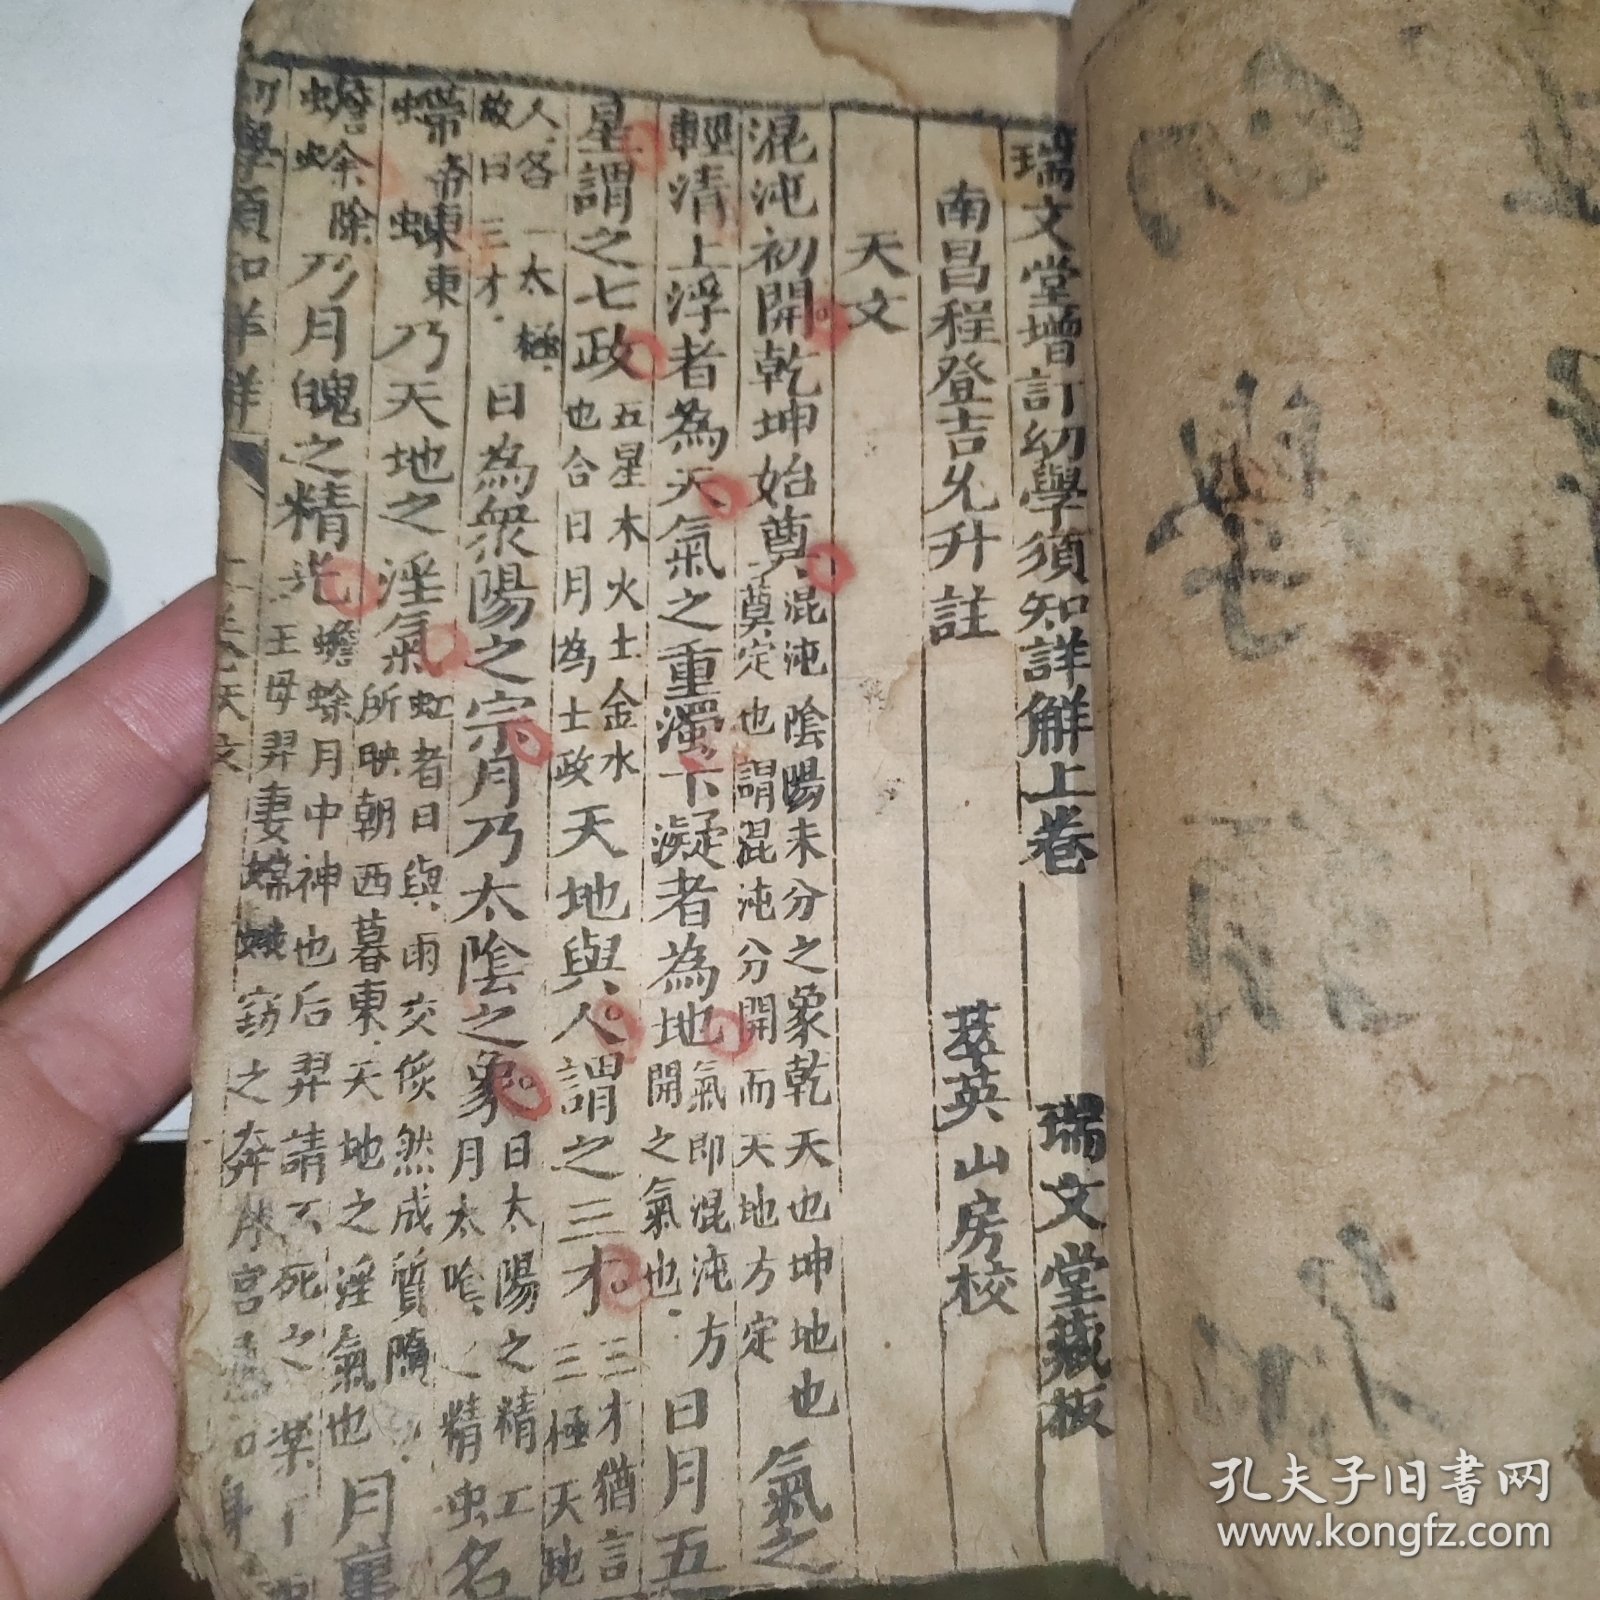 瑞文堂增訂幼學須知詳解上卷 瑞文堂藏板
南昌程登吉允升註 萃英山房校
天文
混沌初開乾坤始奠混沌陰陽未分之象乾天也坤地也奠定也謂混沌分開而天地方定氣之
輕清上浮者為天氣之重濁下凝者為地氣即混沌方開之氣也日月五
星謂之七政五星木火土金水也合日月為士政天地與人謂之三才三才猶言三極天地
人各一太極故曰三才日為衆陽之宗月乃太陰之象日太陽之精月太陰之精虫名
螮蝀帝東乃天地之淫氣虹者日與雨交倐然成質所映朝西暮東天地之淫氣也月裏
蟾蜍乃月魄之精光蟾蜍月中神也后羿請不死之藥王母羿妻嫦娥窃之奔月宮
幼學須知詳解 上卷天文
孔夫子旧书网
www.kongfz.com